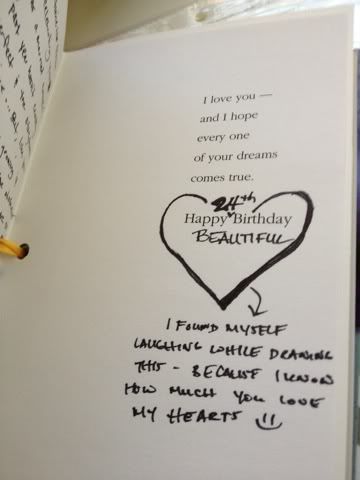 I love you —
and I hope
every one
of your dreams
comes true.
24th
Happy Birthday
BEAUTIFUL
I FOUND MYSELF
LAUGHING WHILE DRAWING
THIS - BECAUSE I KNOW
HOW MUCH YOU LOVE
MY HEARTS